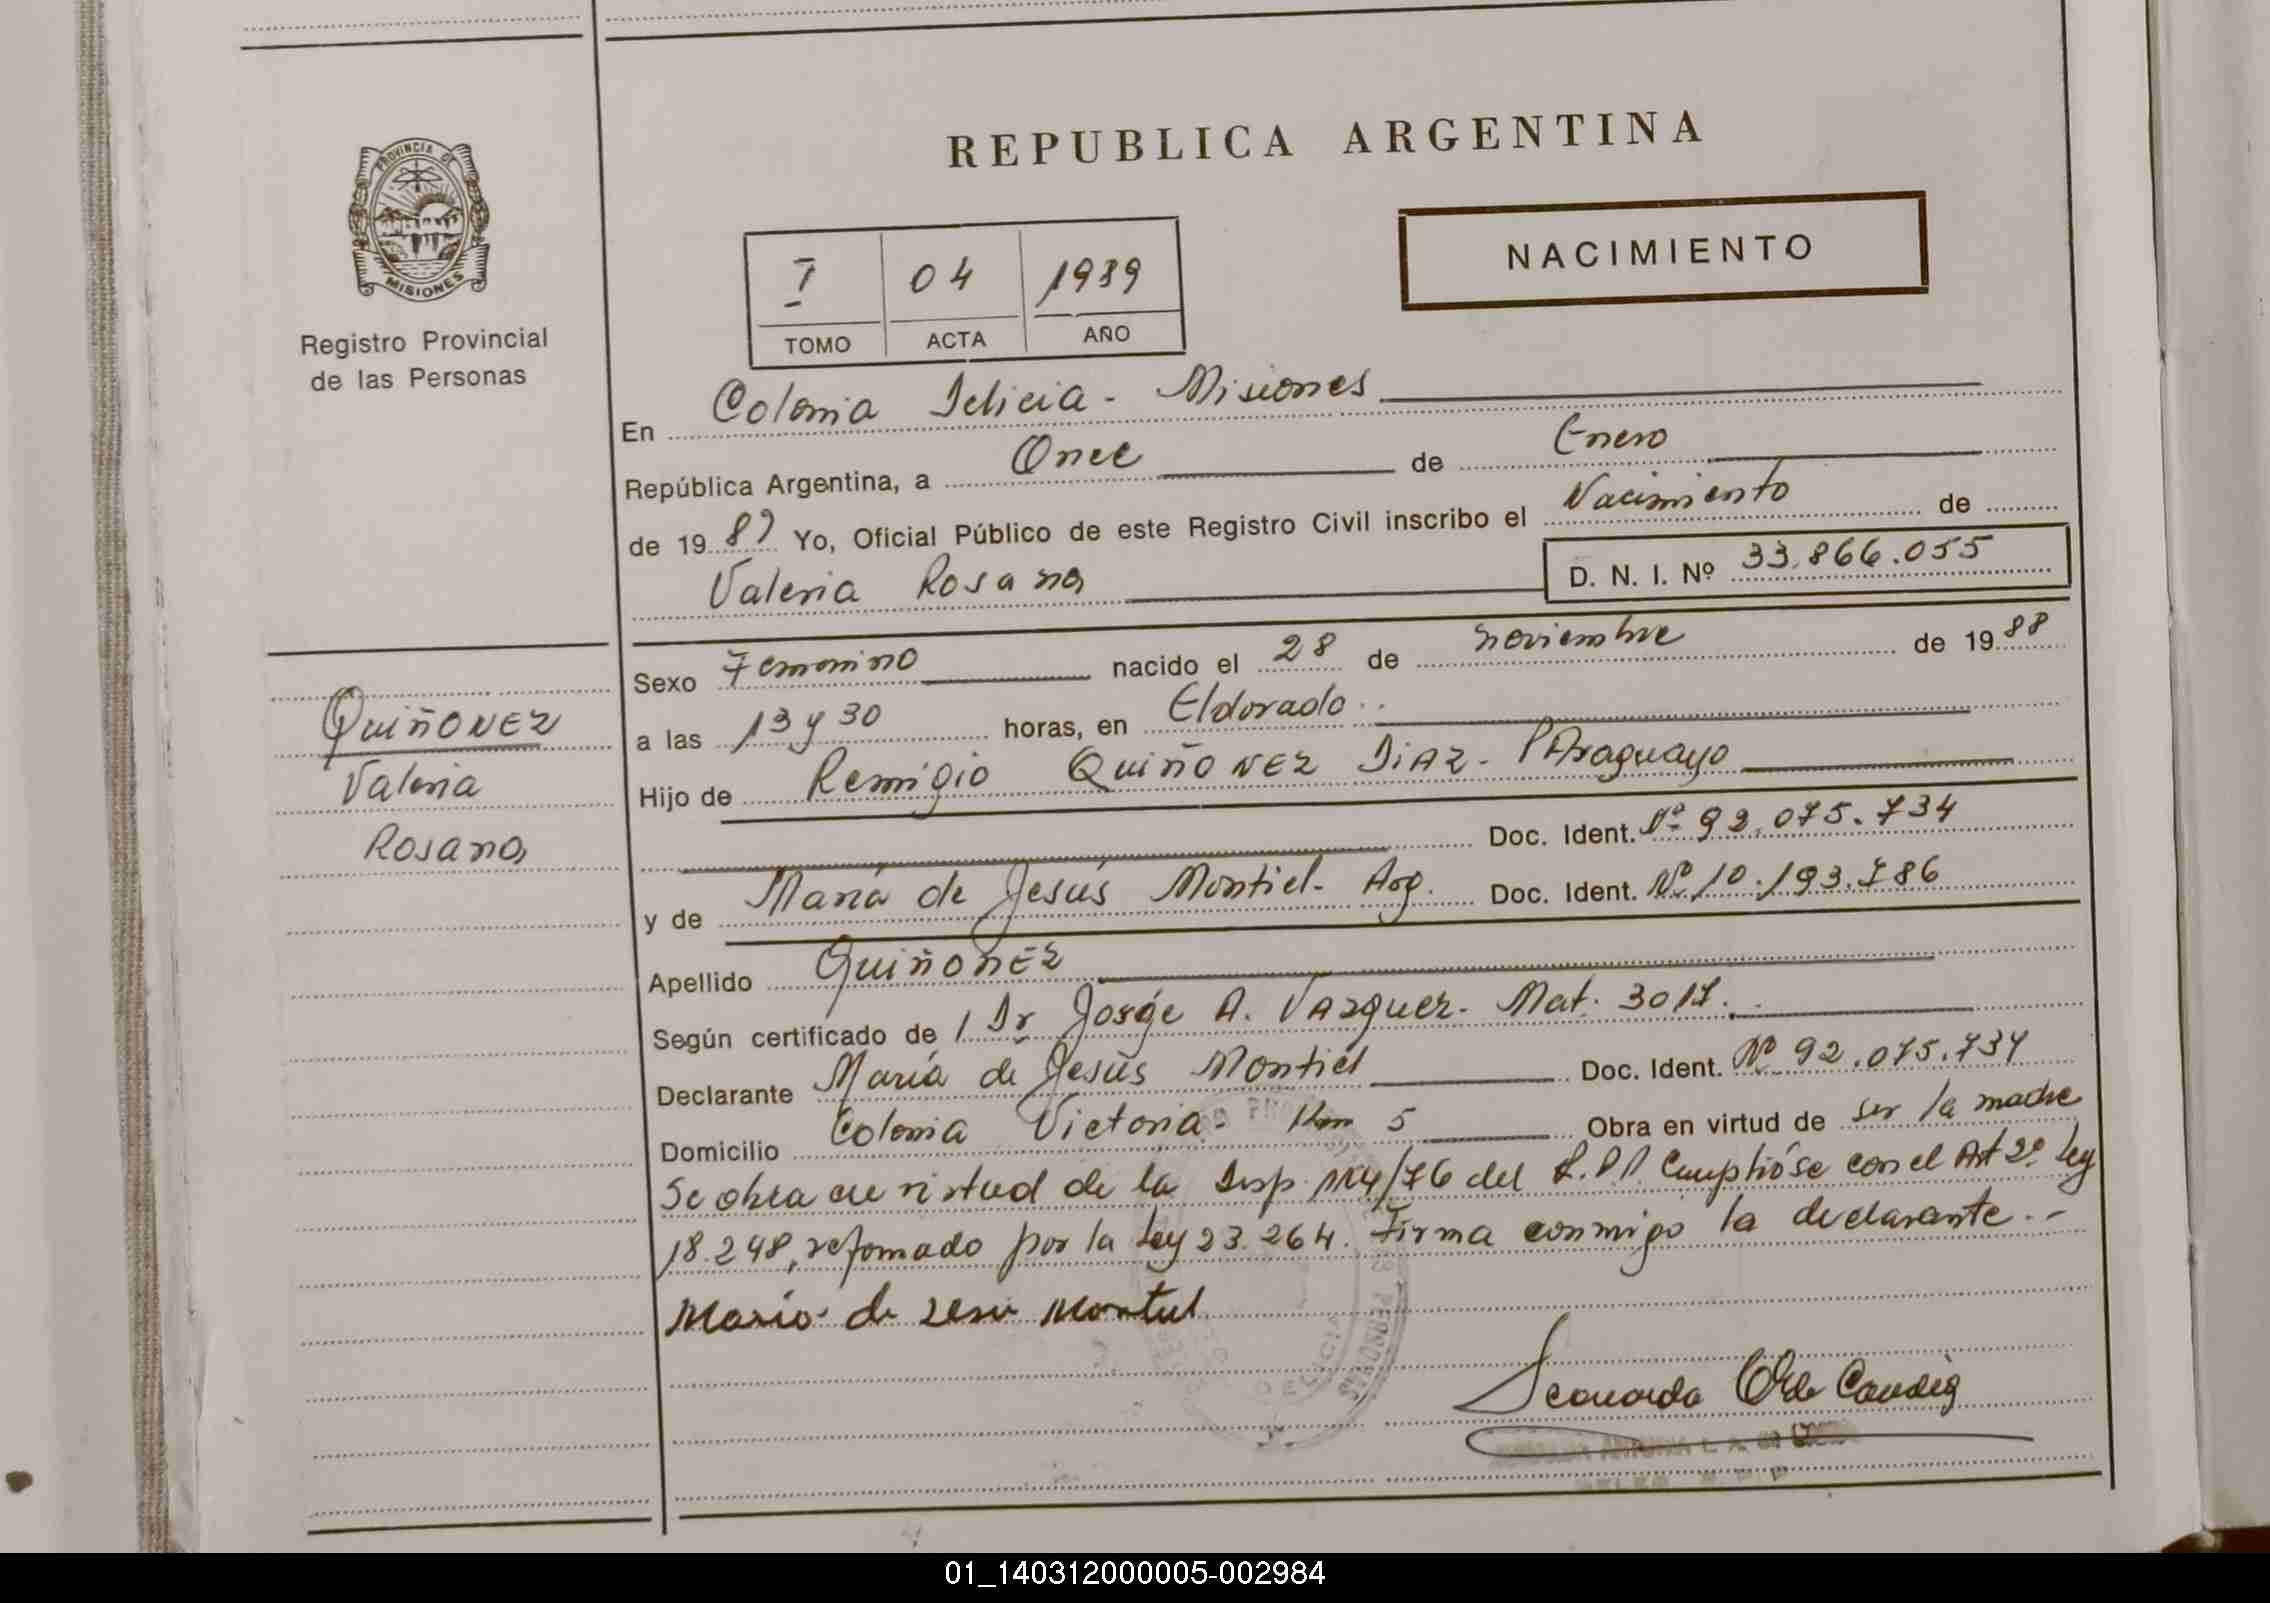 REPUBLICA ARGENTINA
PROVINCIA DE
MISIONES
Registro Provincial
de las Personas
NACIMIENTO
I 04 1989
TOMO ACTA AÑO
En Colonia Delicia - Misiones
República Argentina, a Once de Enero
de 1989 Yo, Oficial Público de este Registro Civil inscribo el Nacimiento de
Valeria Rosana D. N. I. Nº 33.866.055
Quiñonez
Valeria
Rosana
Sexo Femenino nacido el 28 de noviembre de 1988
a las 13 y 30 horas, en Eldorado
Hijo de Remigio Quiñonez Diaz - Paraguayo
Doc. Ident. Nº 92.075.734
y de María de Jesús Montiel - Arg. Doc. Ident. Nº 10.193.786
Apellido Quiñonez
Según certificado de Dr Jorge A. Vazquez - Mat.
Declarante María de Jesús Montiel Doc. Ident. Nº 92.075.734
Domicilio Colonia Victoria - Km 5 Obra en virtud de ser la madre
Se obra en virtud de la Disp. del R.P.P. Cumplióse con el Art 2º Ley
18.248, reformado por la Ley 23.264. Firma conmigo la declarante.-
Montiel
DELICIA
01_140312000005-002984